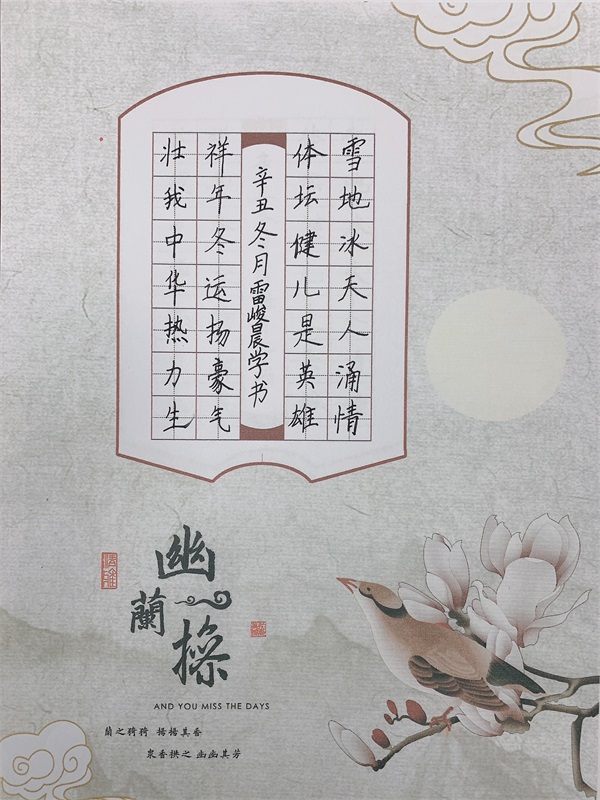 雪地冰天人涌情
体坛健儿是英雄
辛丑冬月雷峻晨学书
祥年冬运扬豪气
壮我中华热力生
幽
蘭
操
AND YOU MISS THE DAYS
蘭之猗猗 揚揚其香
衆香拱之 幽幽其芳